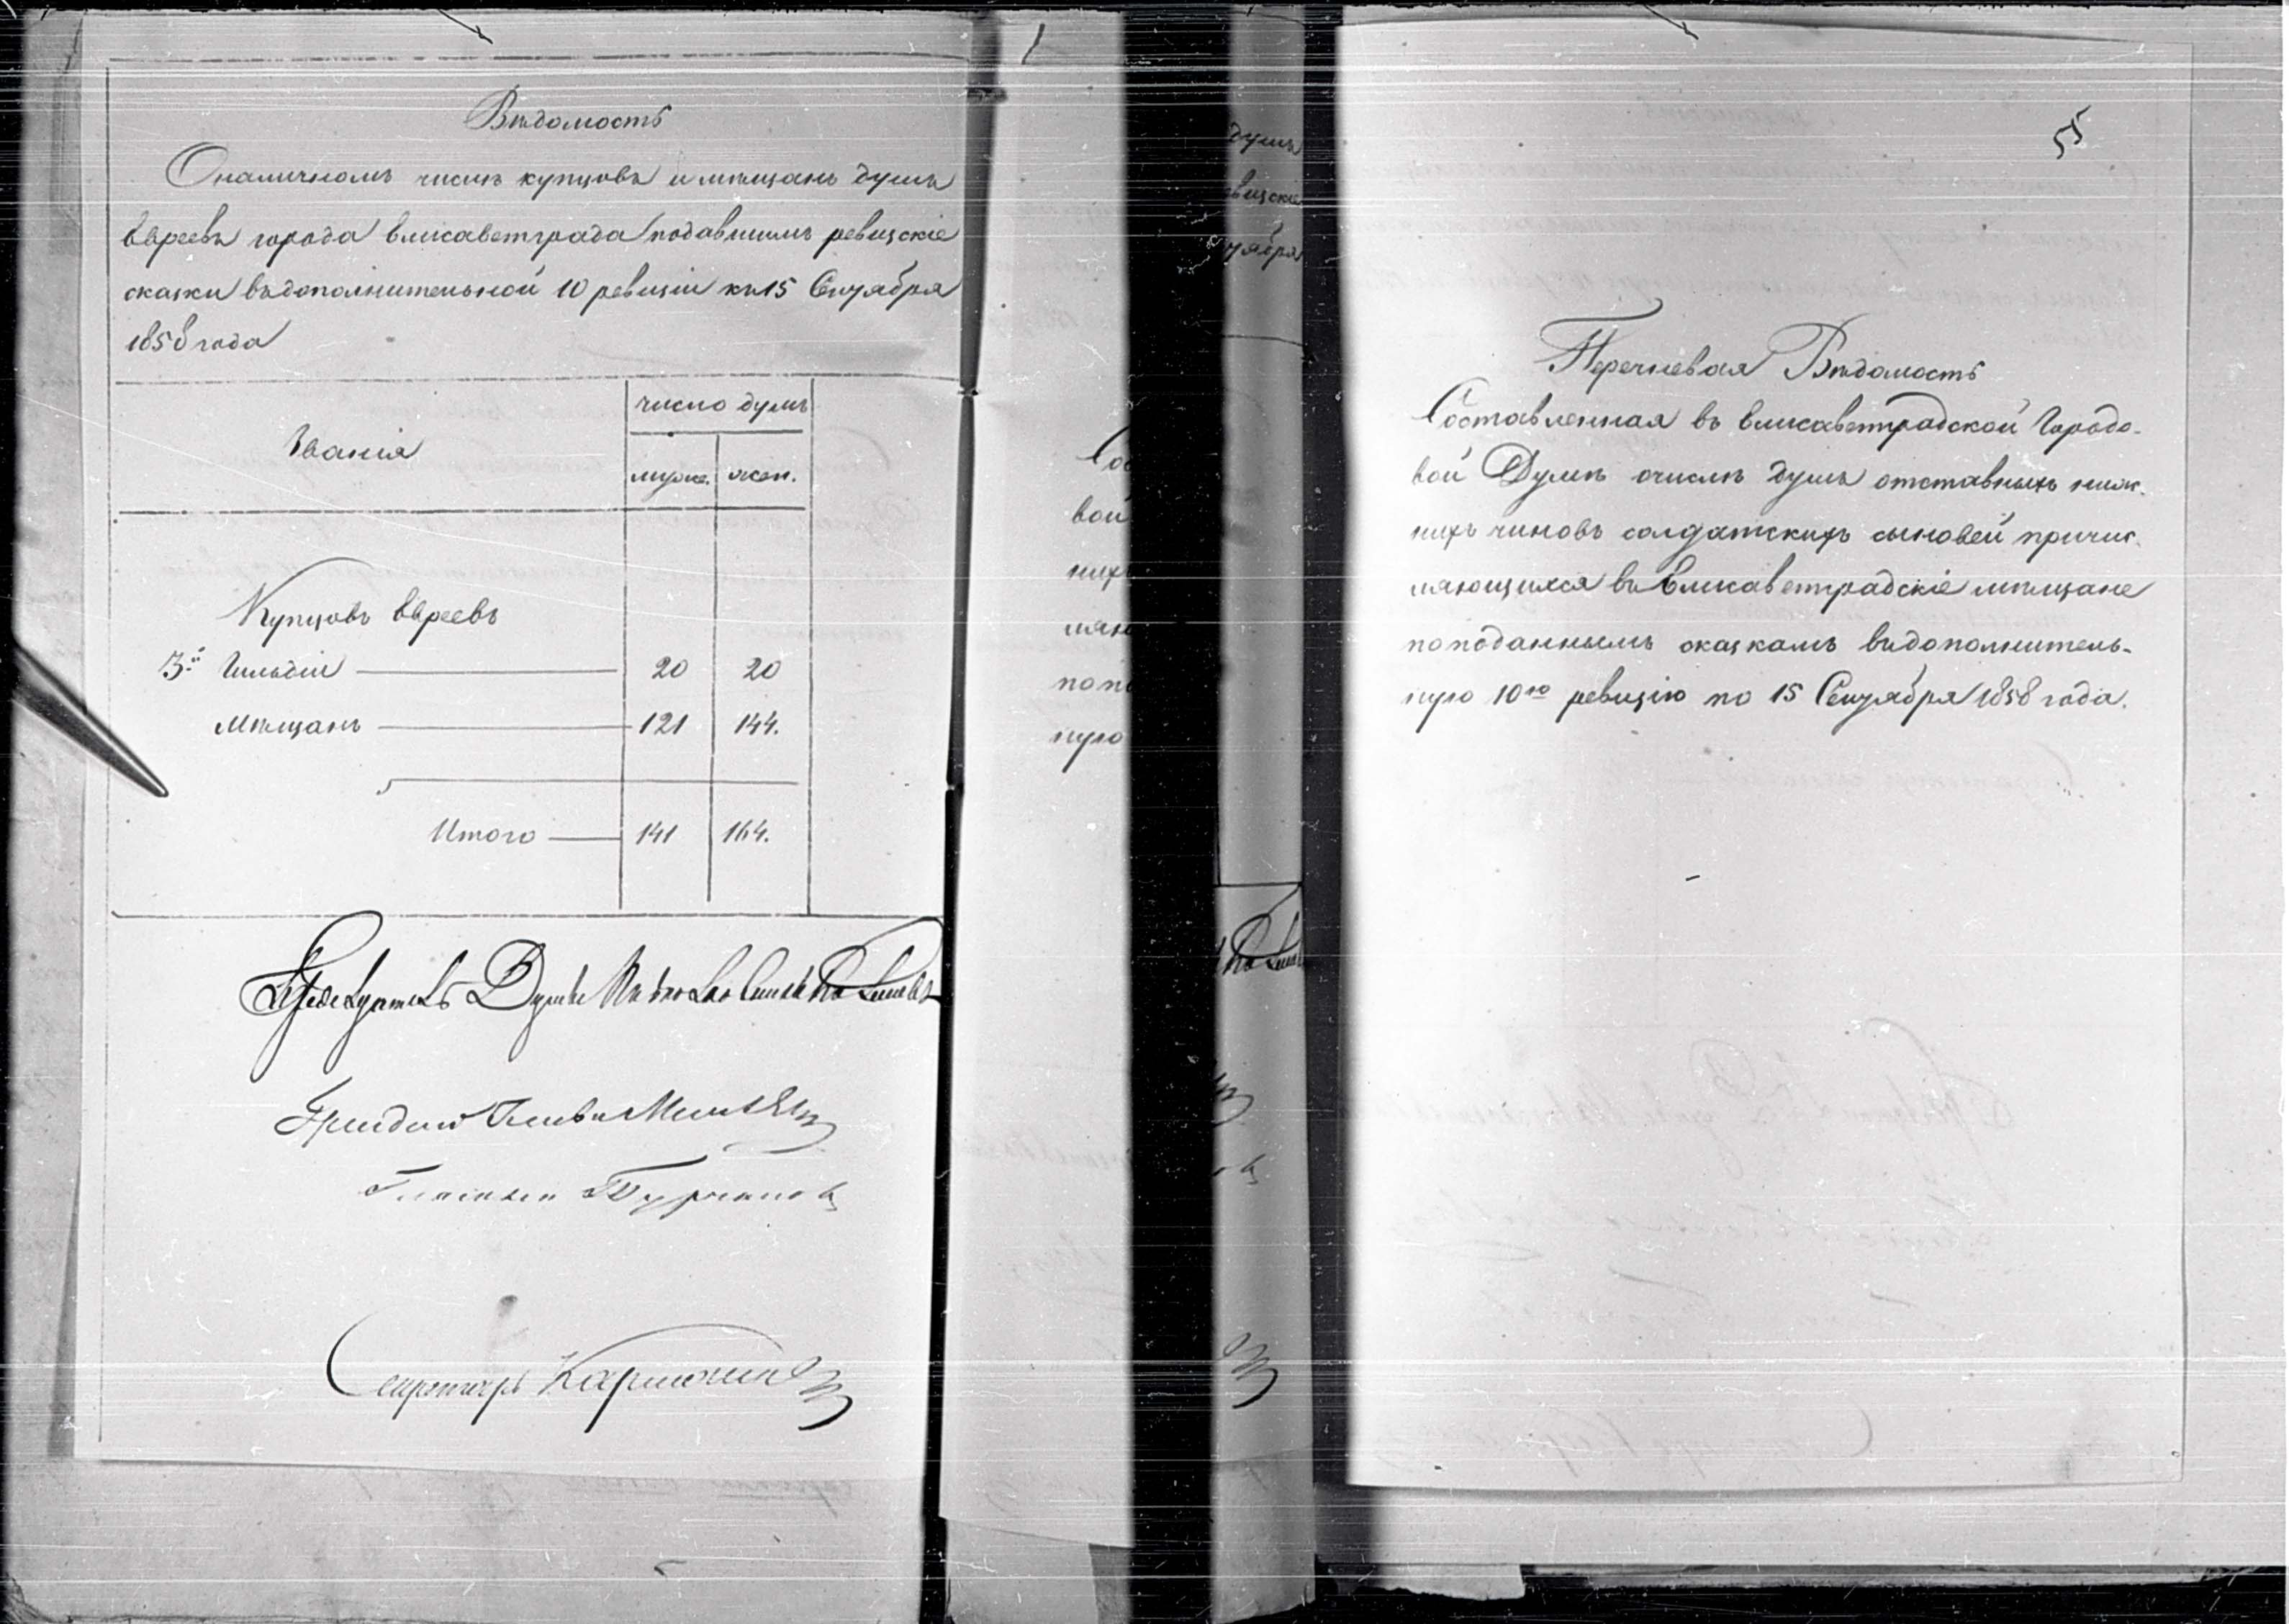 Вѣдомость
Оналичномъ числѣ купцовъ и мѣщанъ душъ
Евреевъ города Елисаветграда подавшимъ ревизскіе
сказки въдополнительной 10 ревизіи къ15 Сентября
1858 года
Званія
число душъ
муже. жен.
Купцовъ Евреевъ
3й Гильдіи 20 20
Мѣщанъ 121 144.
Итого 141 164.
Думы
Гласный
Секретарь
душъ
евизскіе
тября
Сос
вой
нихъ
ляю
попо
ную
55
Перечневая Вѣдомость
Составленная въ Елисаветградской Городо-
вой Думѣ очислѣ душъ отставныхъ ниж-
нихъ чиновъ солдатскихъ сыновей причис-
ляющихся въ Елисаветградскіе мѣщане
поподаннымъ сказкамъ въдополнитель-
ную 10ю ревизію по 15 Сентября 1858 года.